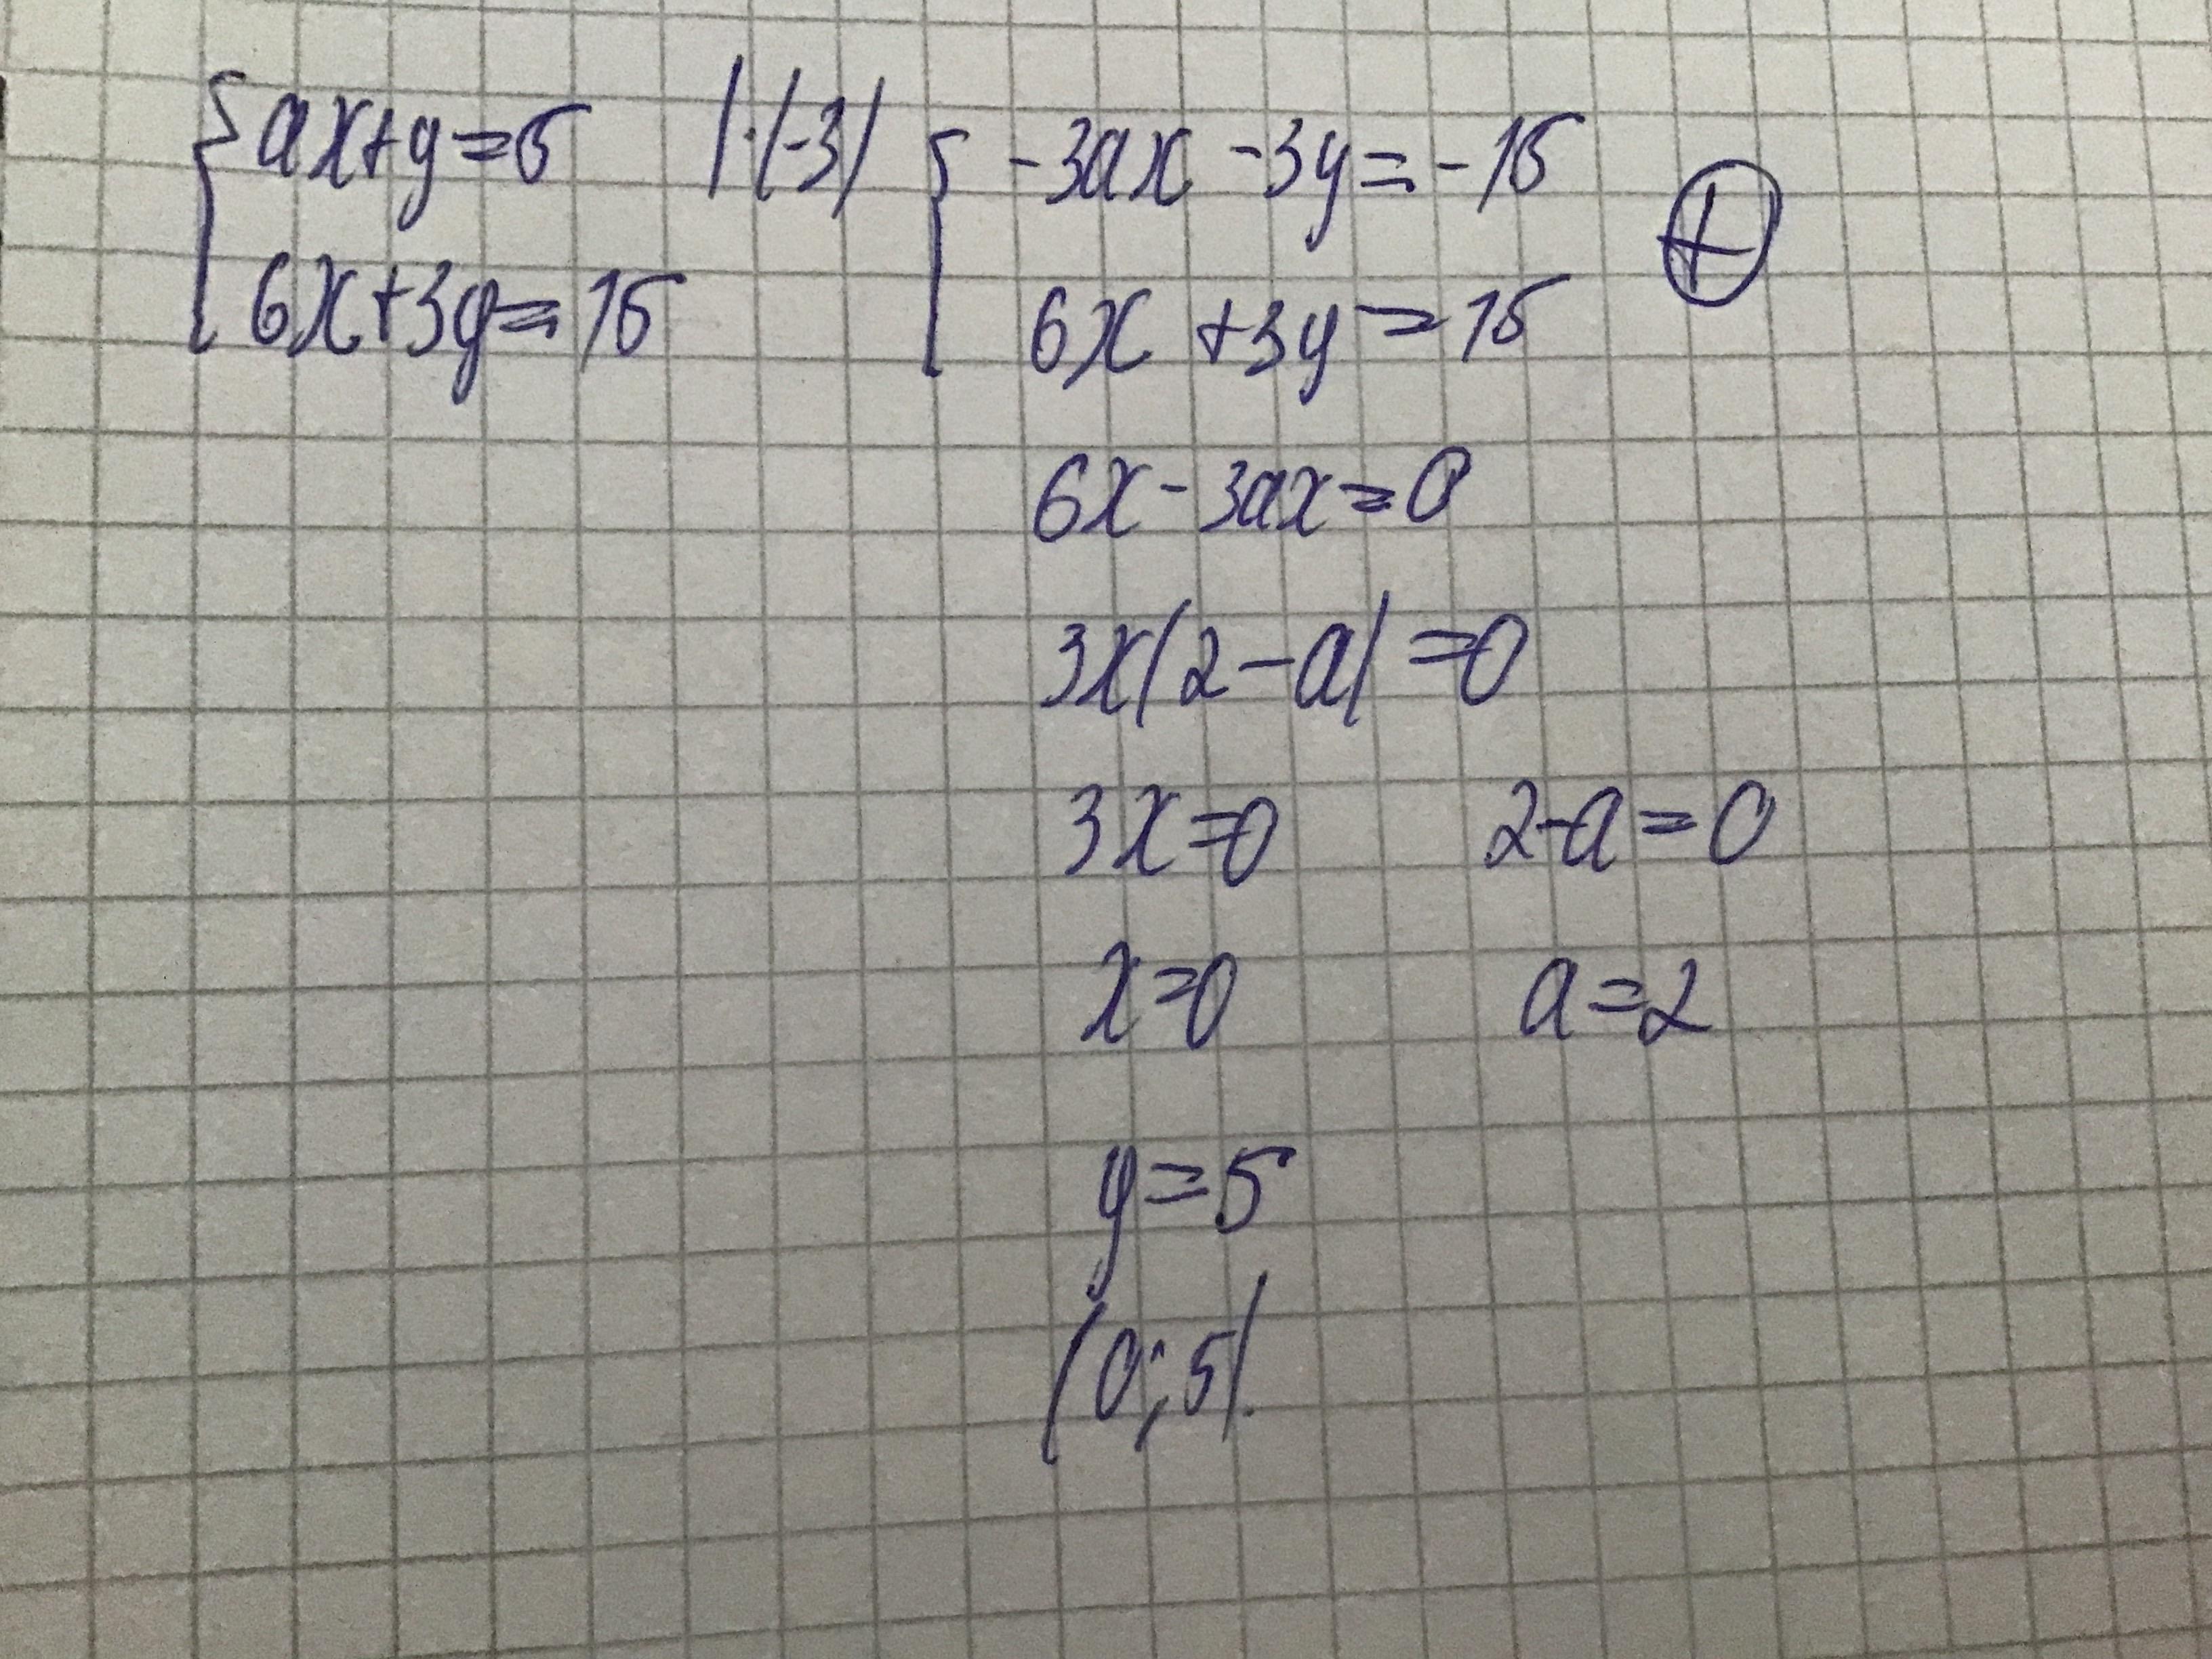 {ax+y=5 |·(-3) { -3ax -3y=-15 ⊕
6x+3y=15 6x +3y=15
6x-3ax=0
3x(2-a)=0
3x=0 2-a=0
x=0 a=2
y=5
(0;5).